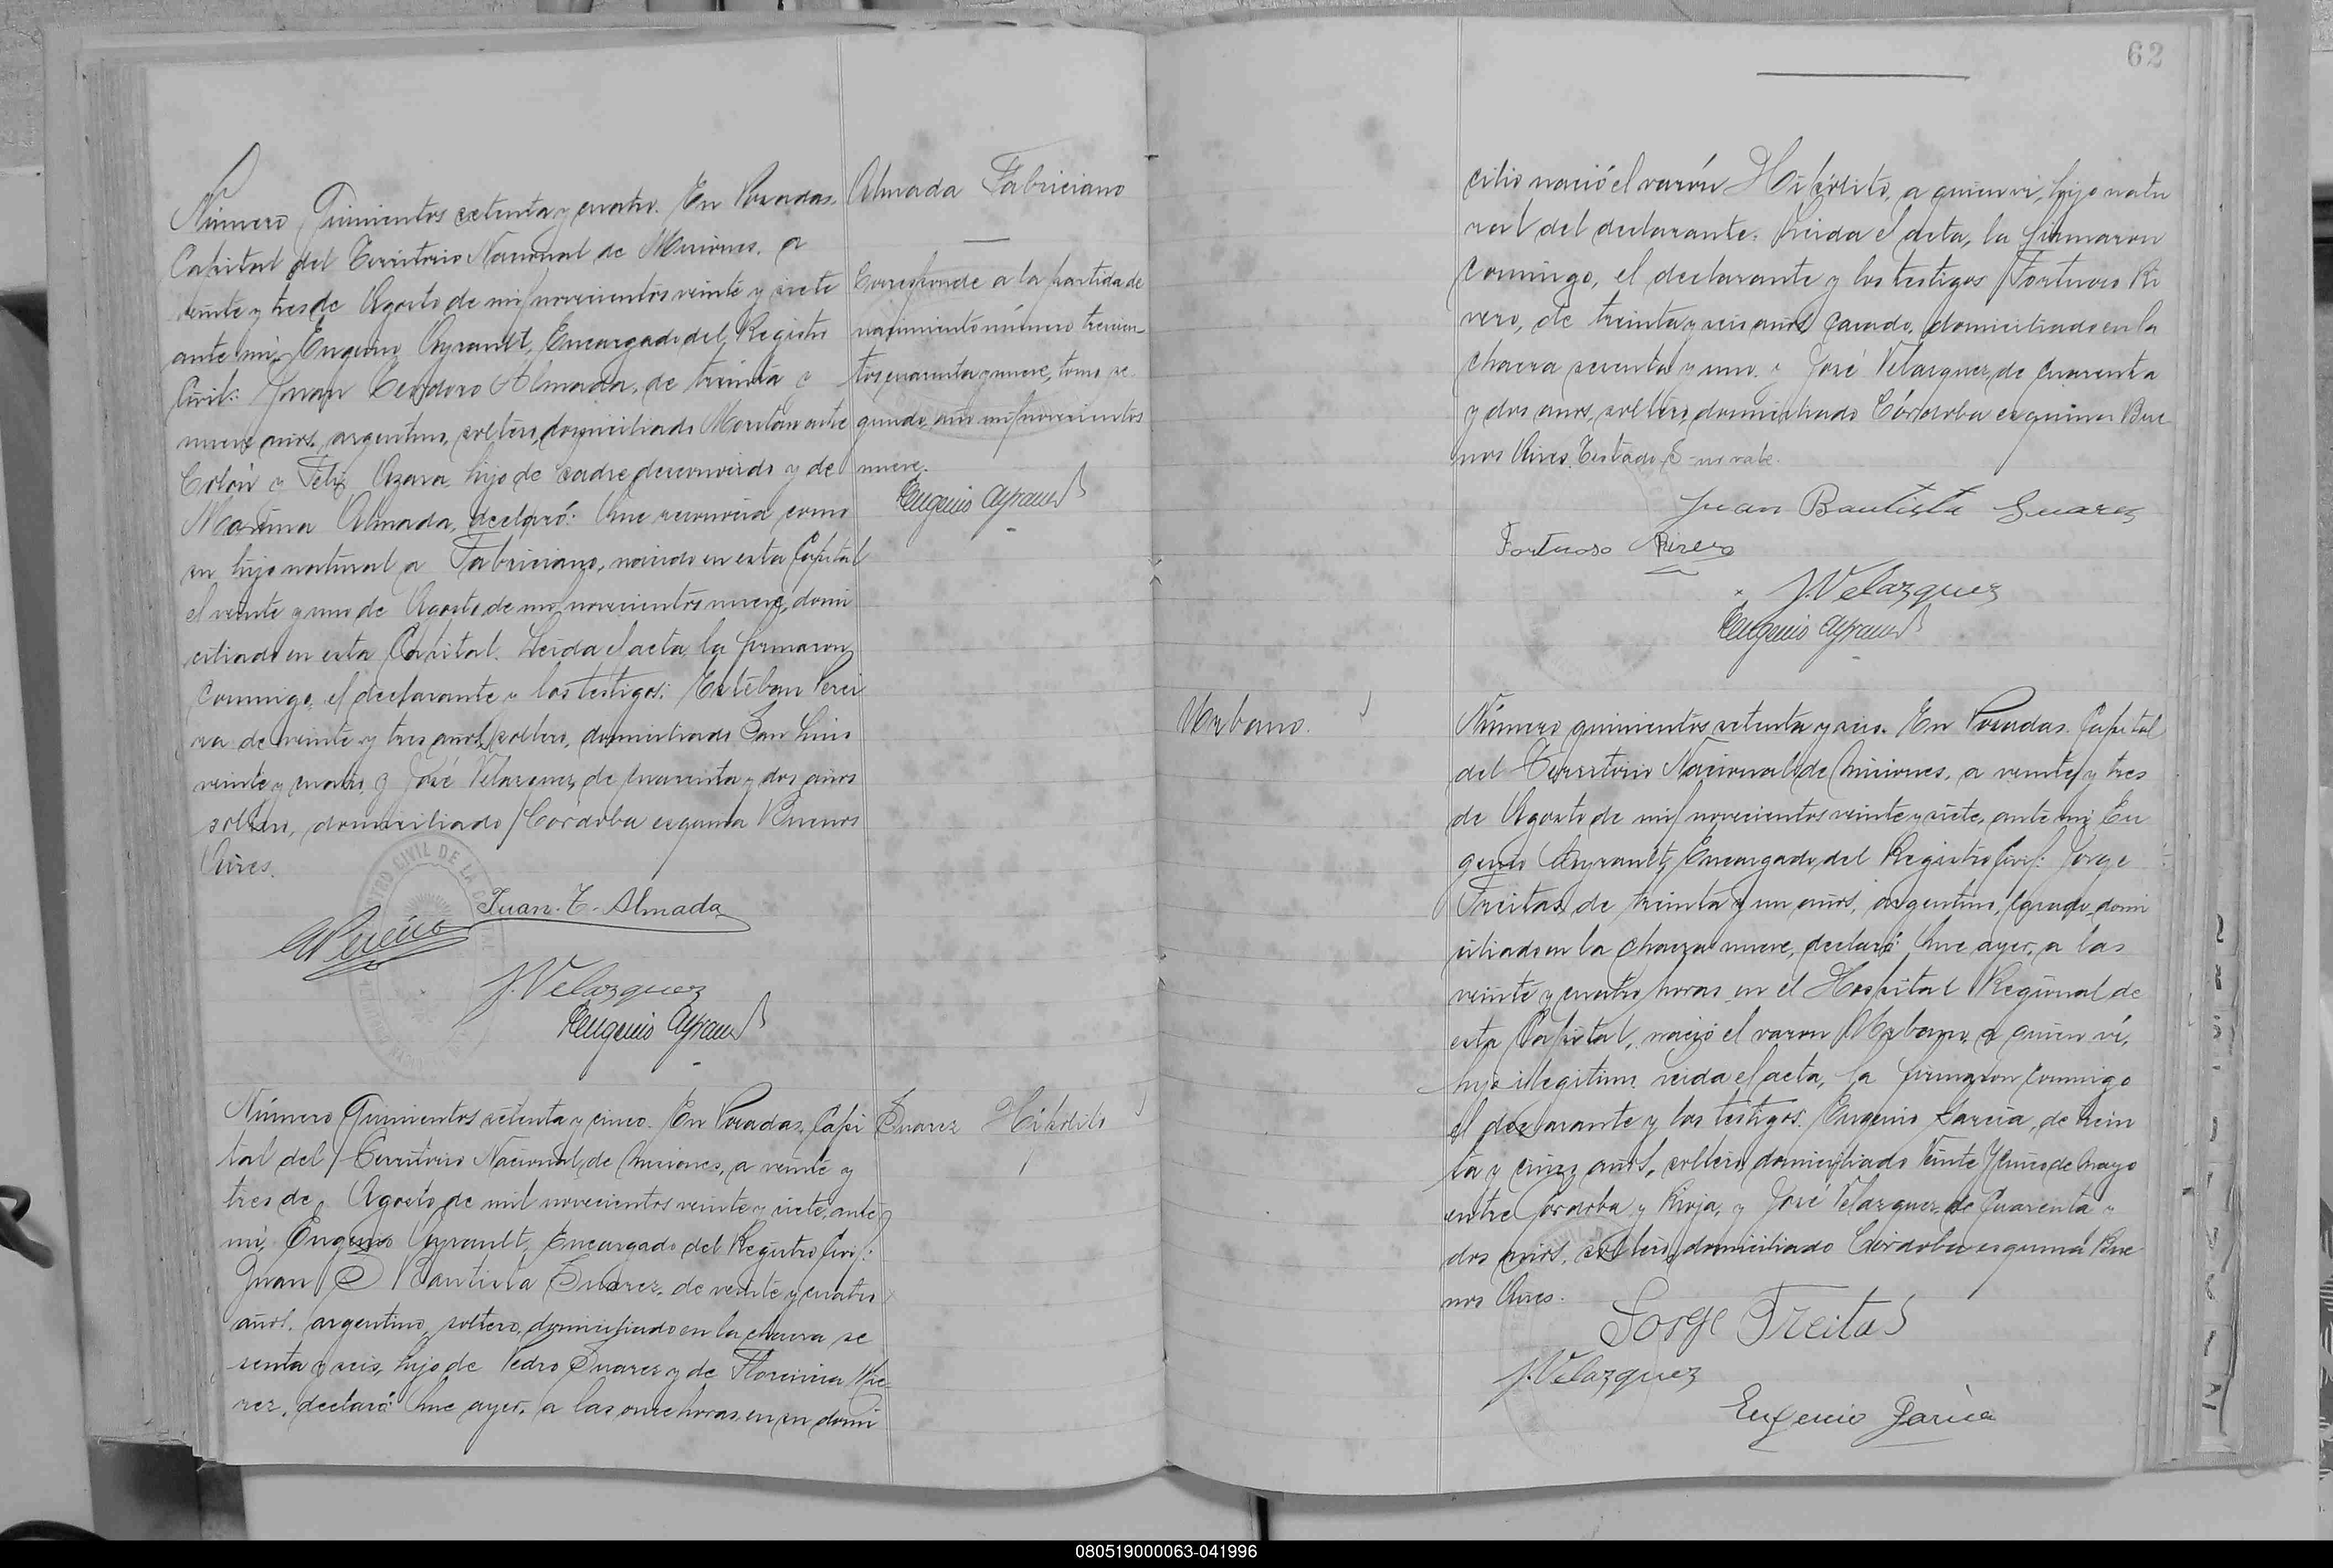 Número Quinientos setenta y cuatro. En Posadas.
Capital del Territorio Nacional de Misiones. a
veinte y tres de Agosto de mil novecientos veinte y siete
ante mi, Eugenio Ayrault, Encargado del Registro
Civil: Juan Teodoro Almada, de treinta y
nueve años, argentino, soltero, domiciliado entre
Colón y Felix Azara, hijo de padre desconocido y de
Almada, declaró: Que reconocía como
su hijo natural a Fabriciano, nacido en esta Capital
el veinte y uno de Agosto de mil novecientos nueve, domi
ciliado en esta Capital. Leida el acta la firmaron
conmigo, el declarante y los testigos: Esteban Perei
ra de veinte y tres años, soltero, domiciliado San Luis
veinte y cuatro, y José Velazquez, de cuarenta y dos años
soltero, domiciliado Córdoba esquina Buenos
Aires.
Juan. T. Almada
J. Velazquez
Eugenio Ayrault
Almada Fabriciano
Corresponde a la partida de
nacimiento número trescien-
tos cuarenta y nueve, tomo se-
gundo, año mil novecientos
nueve.
Eugenio Ayrault
Número Quinientos setenta y cinco. En Posadas. Capi
tal del Territorio Nacional de Misiones, a veinte y
tres de Agosto de mil novecientos veinte y siete, ante
mi, Eugenio Ayrault, Encargado del Registro Civil:
Juan Bautista Suarez, de veinte y cuatro
años, argentino, soltero, domiciliado en la chacra se
senta y seis, hijo de Pedro Suarez y de Florencia
rez, declaró: Que ayer, a las once horas, en su domi
Suarez Hipólito
62
cilio nació el varón Hipólito, a quien vi, hijo natu
ral del declarante. Leida el acta, la firmaron
conmigo, el declarante y los testigos Fortuoso Ri
vero, de treinta y seis años, casado, domiciliado en la
chacra sesenta y uno. y José Velazquez, de cuarenta
y dos anos, soltero, domiciliado Córdoba esquina Bue
nos Aires. Testado S - no vale.
Juan Bautista Suarez
Fortuoso Rivero
J. Velazquez
Eugenio Ayrault
Urbano.
Número quinientos setenta y seis. En Posadas. Capital
del Territorio Nacional de Misiones, a veinte y tres
de Agosto de mil novecientos veinte y siete, ante mi Eu
genio Ayrault, Encargado del Registro Civil: Jorge
Freitas, de treinta y un años, argentino, casado, domi
ciliado en la chacra nueve, declaró: Que ayer, a las
veinte y cuatro horas, en el Hospital Regional de
esta Capital, nació el varon Urbano, a quien vi,
hijo ilegitimo. Leida el acta, la firmaron conmigo
el declarante y los testigos. Eugenio Garcia, de trein
ta y cinco años, soltero, domiciliado Veinte y cinco de Mayo
entre Córdoba y Rioja, y José Velazquez, de Cuarenta y
dos años, soltero, domiciliado Córdoba esquina Bue
nos Aires.
Jorge Freitas
J. Velazquez
Eugenio Garcia
080519000063-041996